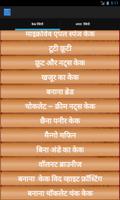 केक रेसिपी
अन्य रेसिपी
माइक्रोवेव एप्पल स्पंज केक
टूटी फ्रूटी
फ्रूट और नट्स केक
खजूर का केक
बादाम केक
चोकलेट – क्रीम नट्स केक
छैना पनीर
मैन्गो मफिन
बिना अंडे का केक
वॉलनट ब्राउनीज
बनाना केक विद व्हाइट फ्रॉस्टिंग
बनाना चॉकलेट चंक केक